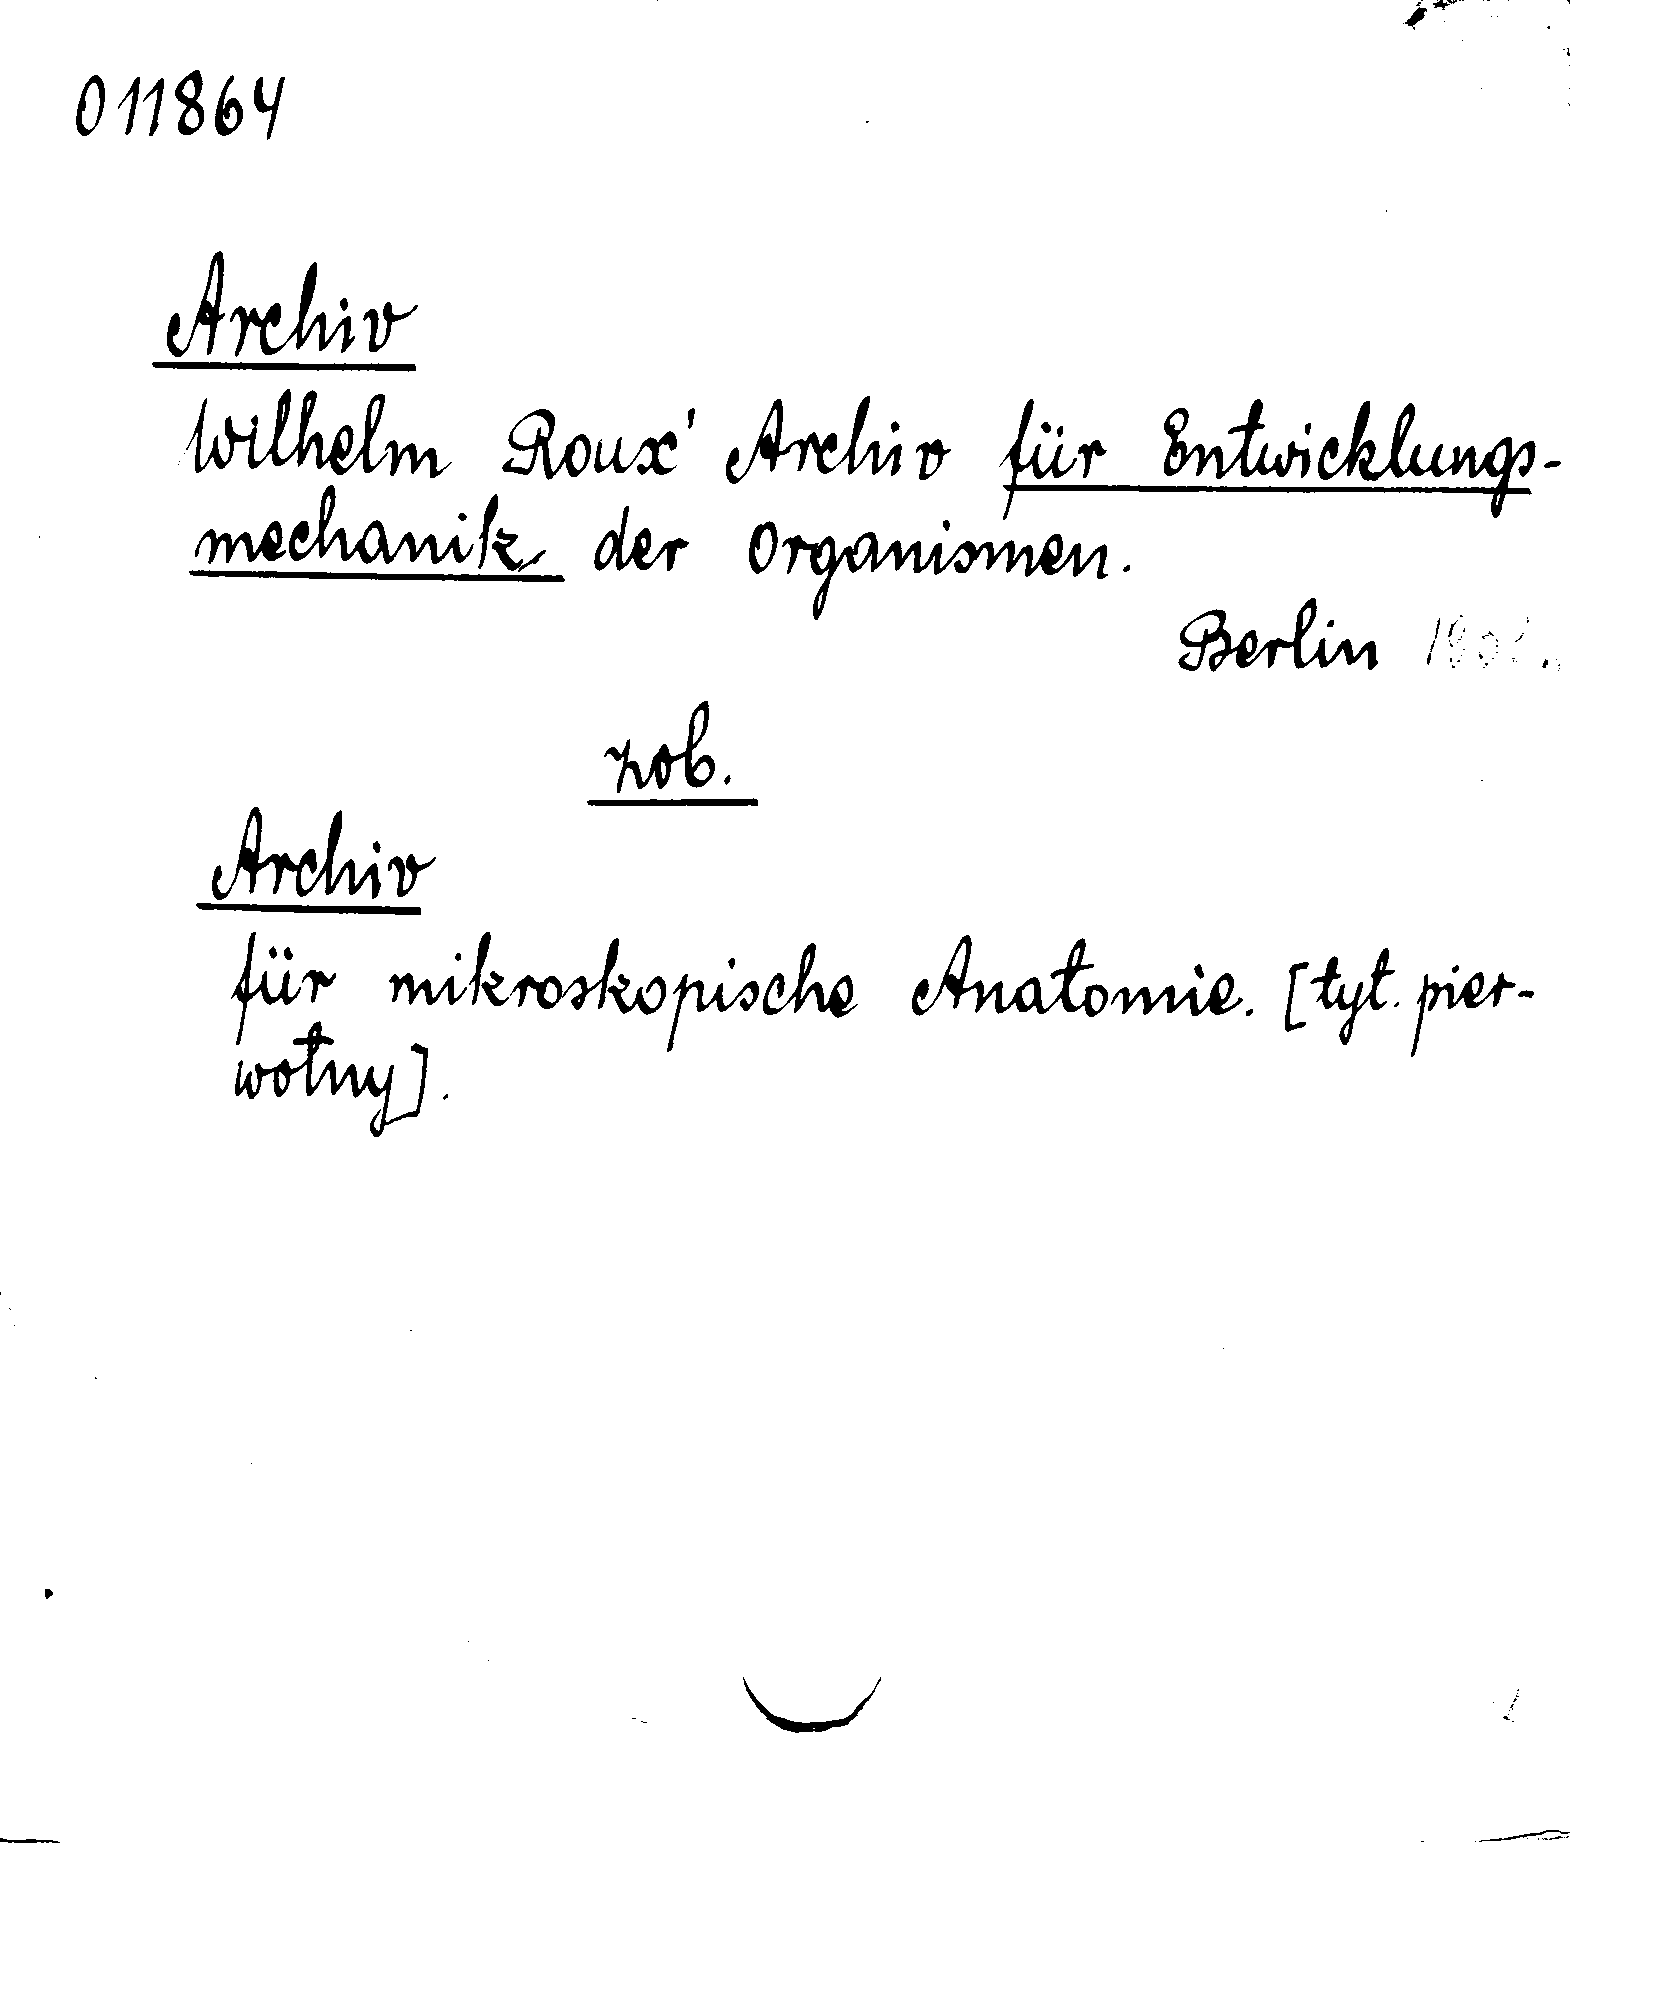 011864
Archiv
Wilhelm Roux' Archiv für Entwicklungs-
mechanik der Organismen.
Berlin
zob.
Archiv
für mikroskopische Anatomie. [tyt. pier-
wotny].